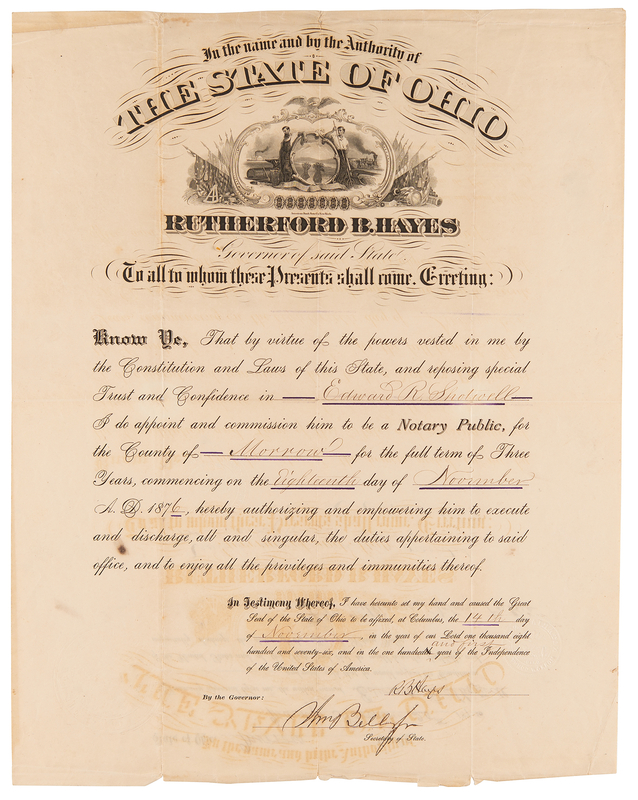 In the name and by the Authority of
THE STATE OF OHIO
RUTHERFORD B. HAYES
Governor of said State.
To all to whom these Presents shall come, Greeting:
Know Ye, That by virtue of the powers vested in me by
the Constitution and Laws of this State, and reposing special
Trust and Confidence in Edward R. Shotwell
I do appoint and commission him to be a Notary Public, for
the County of Morrow for the full term of Three
Years, commencing on the Eighteenth day of November
A. D. 1876, hereby authorizing and empowering him to execute
and discharge, all and singular, the duties appertaining to said
office, and to enjoy all the privileges and immunities thereof.
In Testimony Whereof, I have hereunto set my hand and caused the Great
Seal of the State of Ohio to be affixed, at Columbus, the 14th day
of November in the year of our Lord one thousand eight
and first
hundred and seventy-six, and in the one hundred year of the Independence
of the United States of America.
R B Hayes
By the Governor:
Wm Bell Jr
Secretary of State.